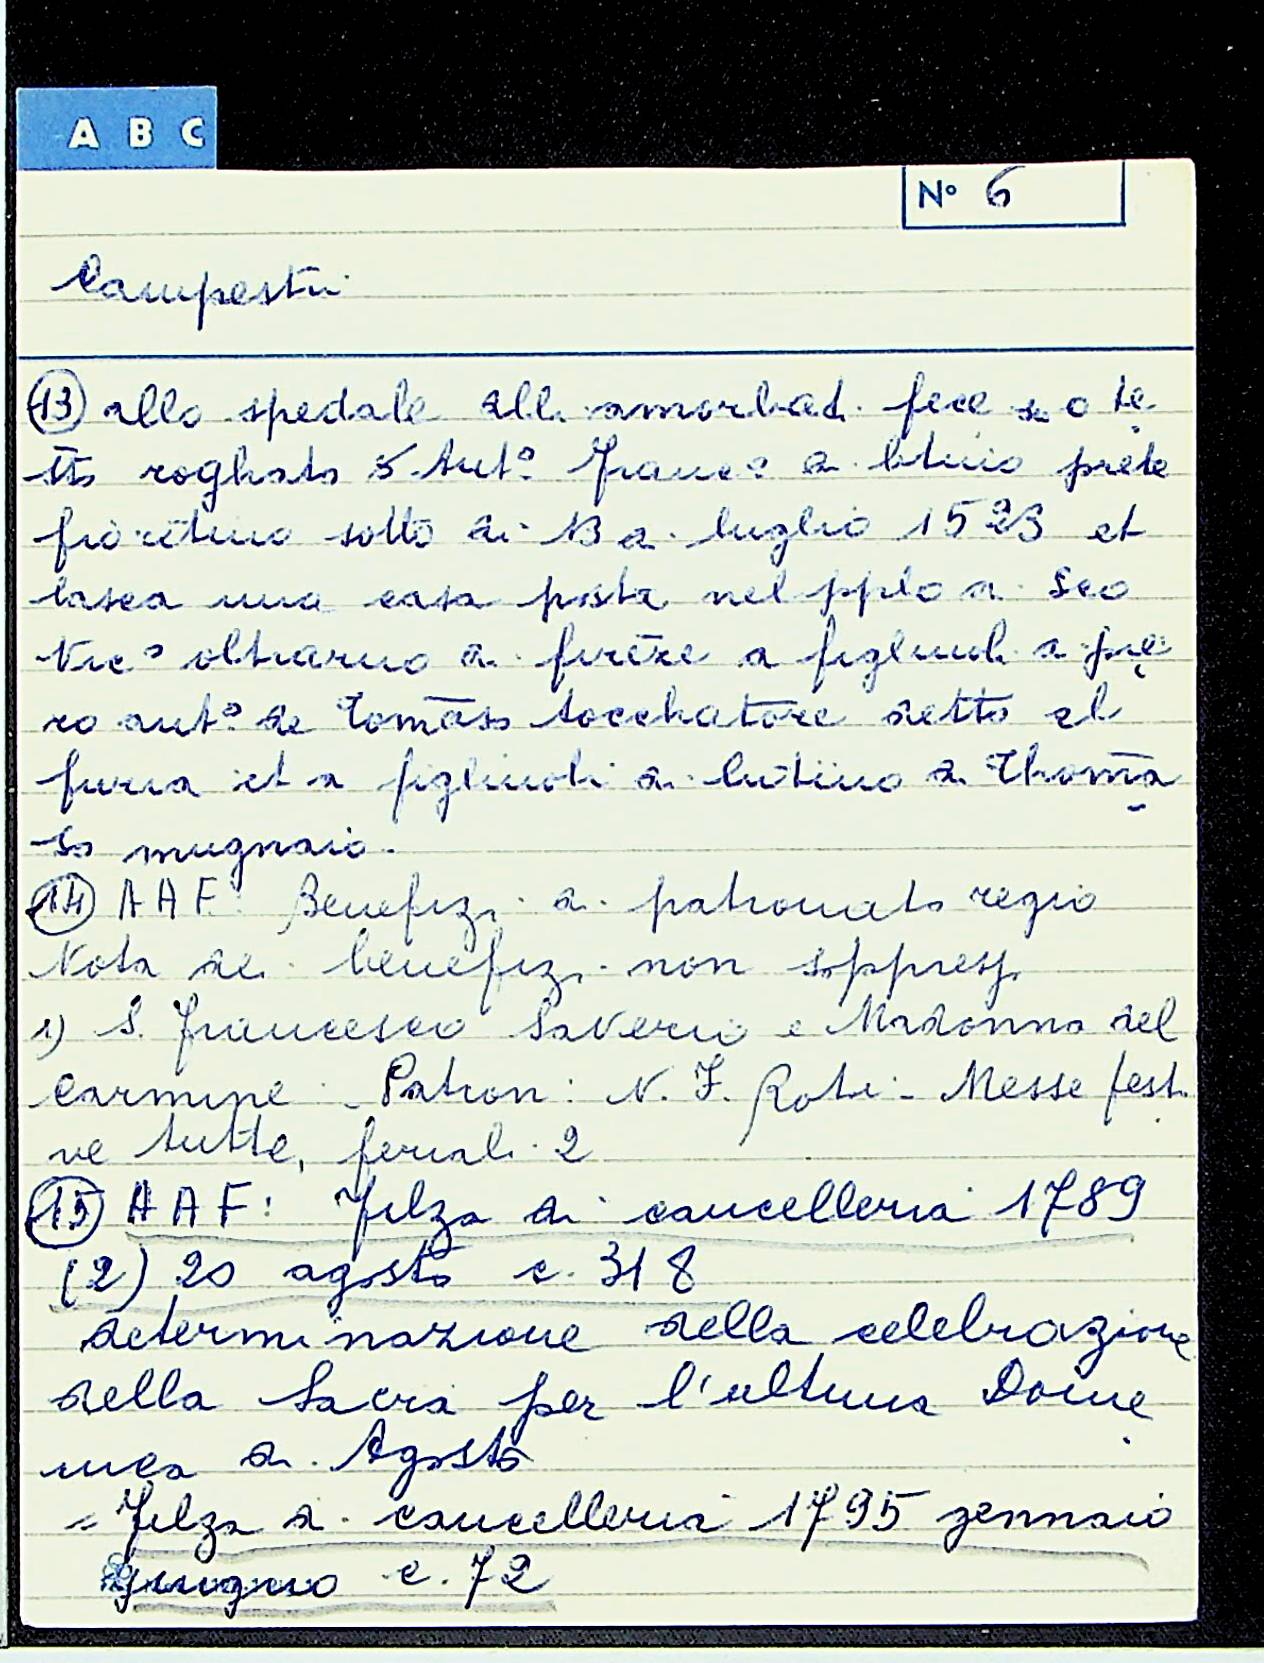 A B C
N° 6
Campestri
13 allo spedale alli amorbati fece suo te
sto roghato S Ant° Franc° di btino prete
fiorētino sotto di 13 di luglio 1523 et
lascia una casa posta nel pplo di Sco
Nic° oltrarno di firēze a figliuoli di pie
ro ant° de Tomāso tocchatore detto el
furia et a figliuoli di butino di Thomā
so mugnaio.
14 AAF: Benefizi di patronato regio
Nota dei benefizi non soppressi
1) S. Francesco Saverio e Madonna del
Carmine. Patron: N. F. Roti - Messe festi
ve tutte, feriali 2
15 AAF: Filza di cancelleria 1789
(2) 20 agosto c. 318
determinazione della celebrazione
della Sacra per l'ultima Dome
nica di Agosto
- Filza di cancelleria 1795 gennaio
giugno c. 72